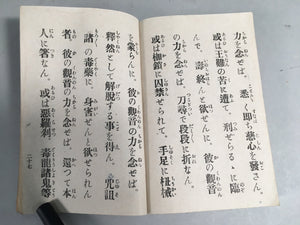 力を念せば。悉く即ち慈心を發さん。
或は王難の苦に遭て。刑せらるゝに臨
んで。壽終んと欲せんに。彼の觀音
の力を念せば。刀尋で段段に折なん。
或は枷鎖に囚禁せられて。手足に杻械
を象らんに。彼の觀音の力を念せば。
釋然として解脱する事を得ん。呪詛
諸の毒藥に。身を害せんと欲せられん
者。彼の觀音の力を念せば。還つて本
人に著なん。或は惡羅刹。毒龍諸鬼等
二十七